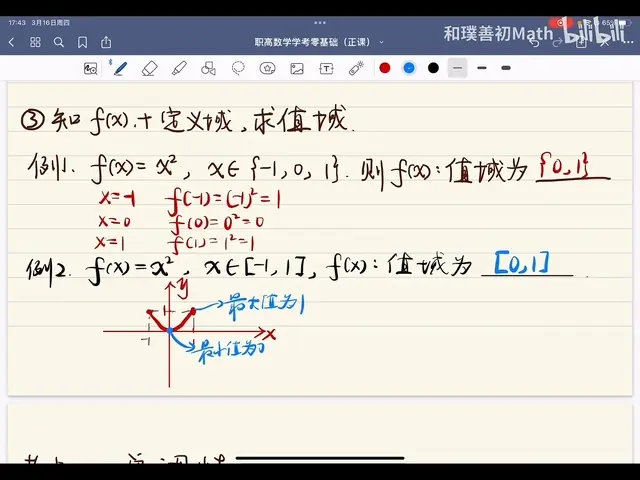 17:43 3月16日周四
65%
和璞善初Math
bilibili
职高数学学考零基础（正课）
③知 f(x).+定义域,求值域.
例1. f(x)=x², x∈{-1,0,1}.则f(x):值域为 {0,1}
x=-1 f(-1)=(-1)²=1
x=0 f(0)=0²=0
x=1 f(1)=1²=1
例2. f(x)=x², x∈[-1,1], f(x):值域为 [0,1].
y
1
最大值为1
-1
x
最小值为0